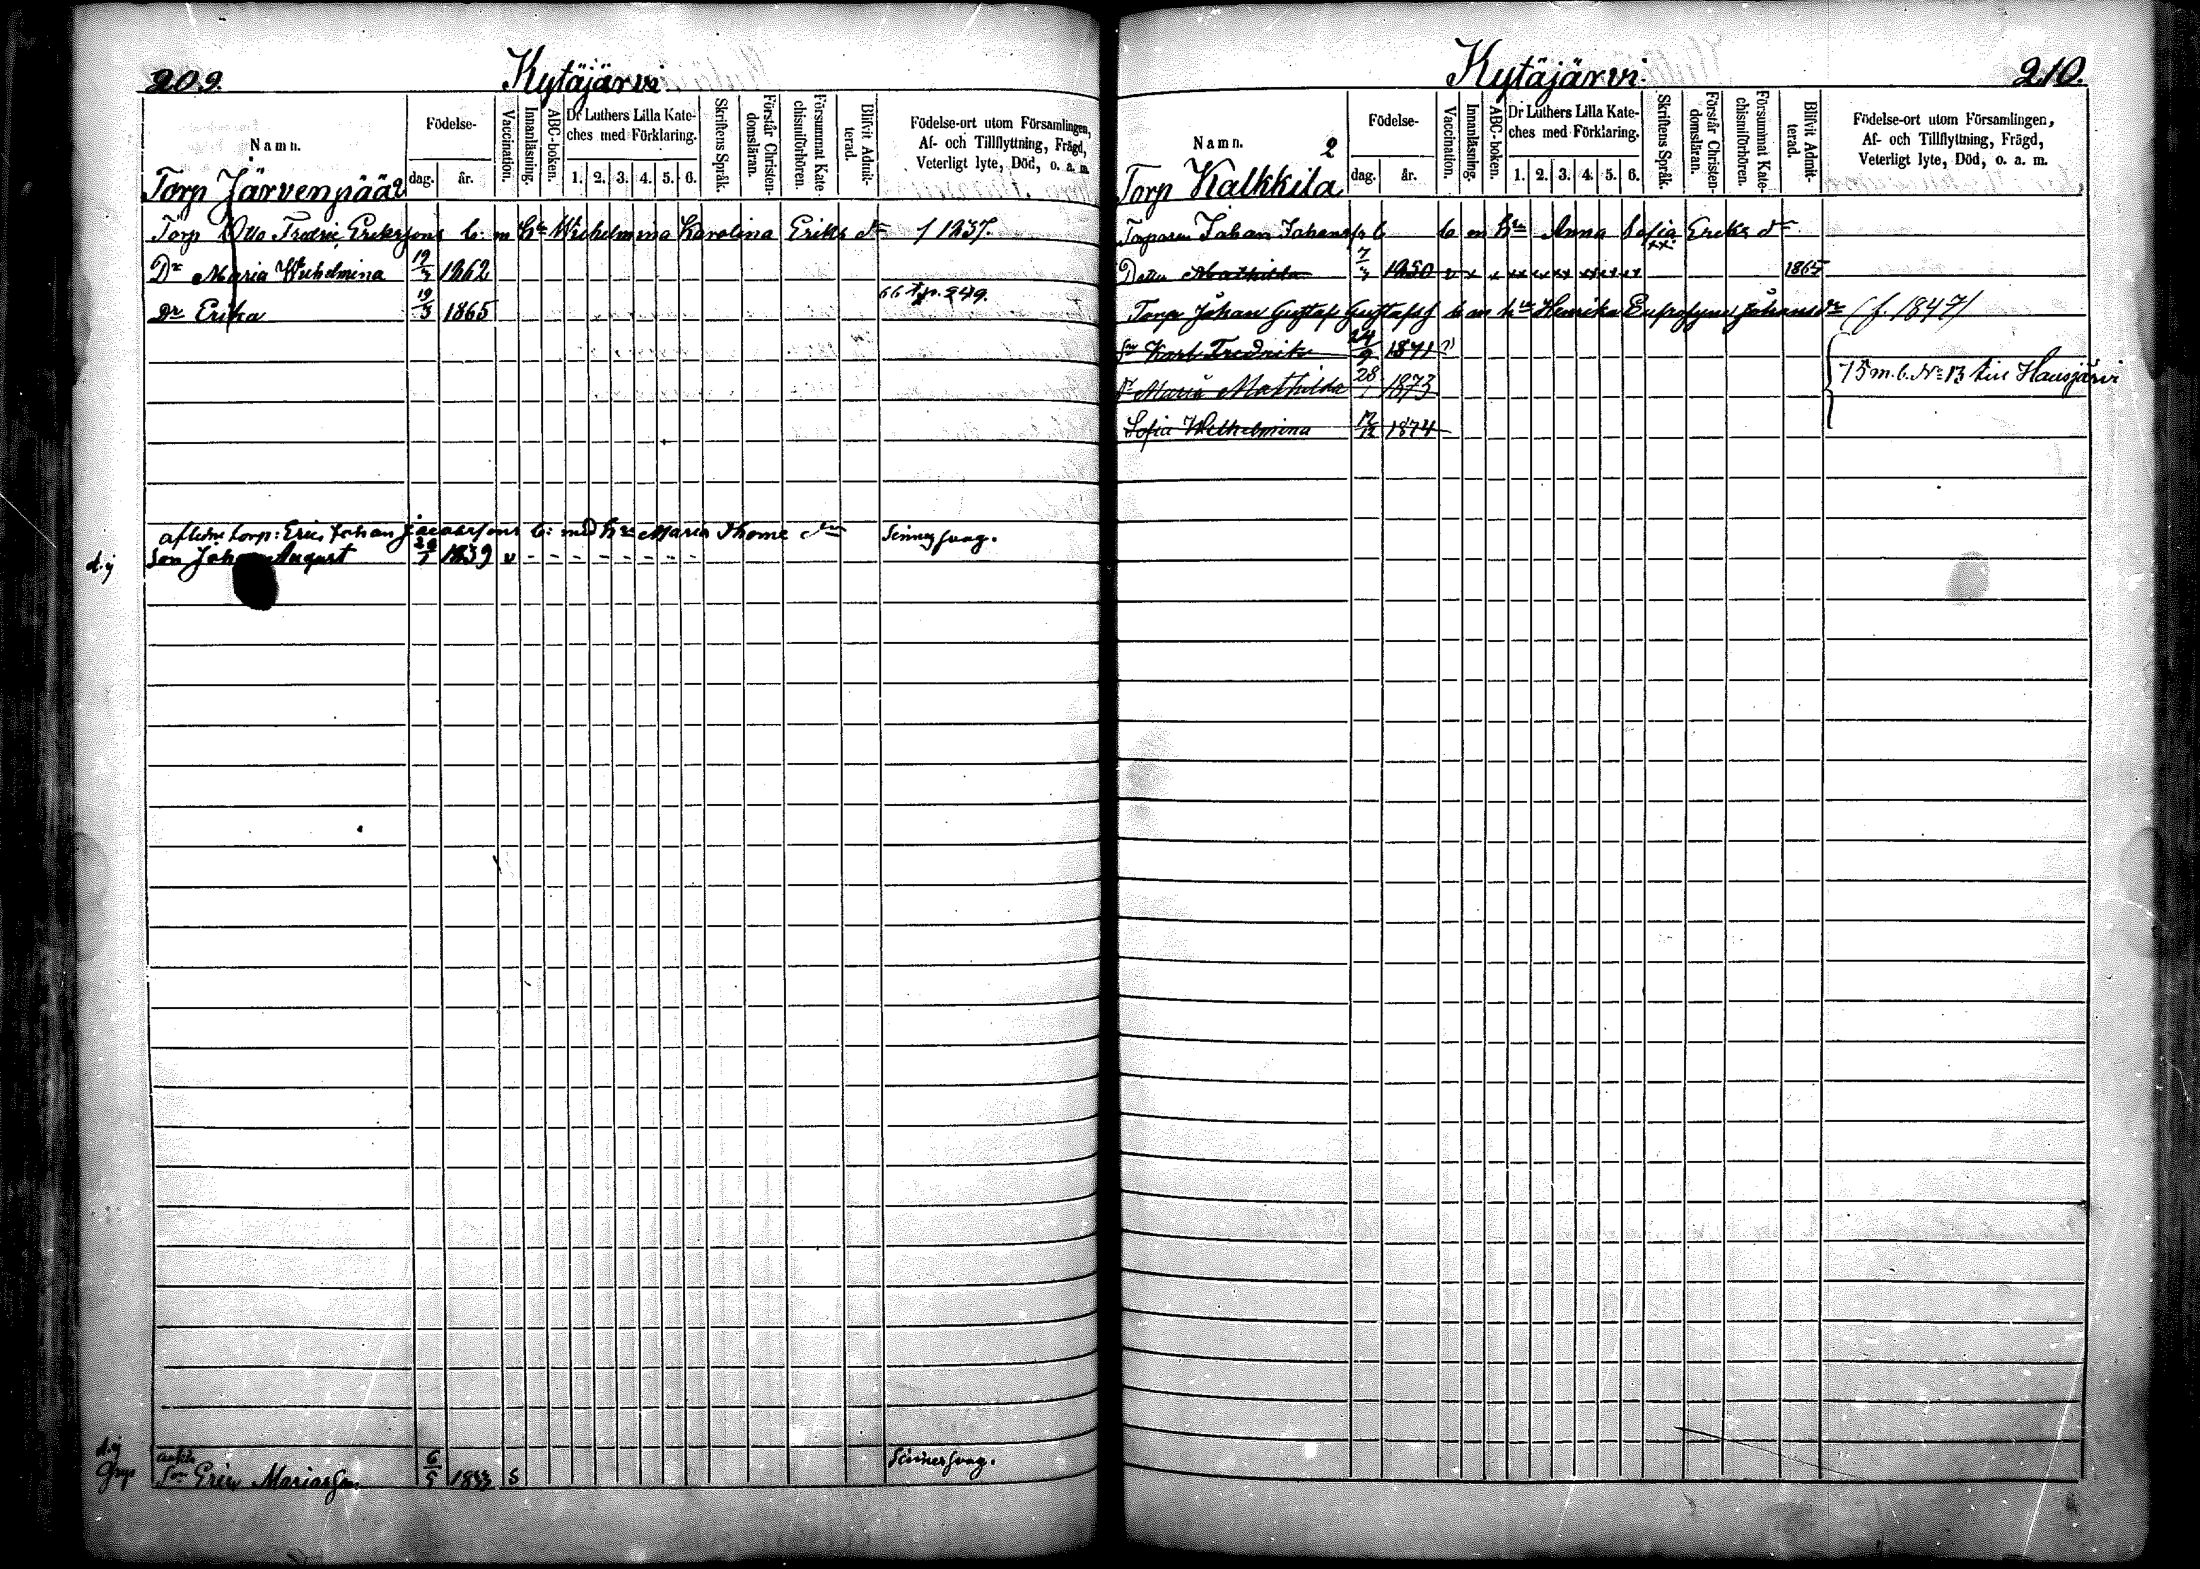 209.
Kytäjärvi
Namn.
Födelse-
dag.
år.
Vaccination.
Innanläsning.
ABC-boken.
Dr Luthers Lilla Kate-
ches med Förklaring.
1. 2. 3. 4. 5. 6.
Skriftens Språk.
Förstår Christen-
domsläran.
Försummat Kate-
chismiförhören.
Blifvit Admit-
terad.
Födelse-ort utom Församlingen,
Af- och Tillflyttning, Frägd,
Veterligt lyte, Död, o. a. m.
Torp Järvenpää 2
Torp Otto Fredric Erikssons b. m hu Wilhelmina Karolina Eriks dr f 1837.
Dr Maria Wilhelmina 19/3 1862
66 tp. 249.
Dr Erika 19/3 1865
aflidne torp: Eric Johan Jacobssons b: med hu Maria Thome dr Sinnessvag.
d.y Son Johan August 1839 v - - - - - - - -
d.y
Son Eric Mariasson 6/5 1833 s Sinnessvag.
Kytäjärvi.
210.
Namn.
Födelse-
dag.
år.
Vaccination.
Innanläsning.
ABC-boken.
Dr Luthers Lilla Kate-
ches med Förklaring.
1. 2. 3. 4. 5. 6.
Skriftens Språk.
Förstår Christen-
domsläran.
Försummat Kate-
chismiförhören.
Blifvit Admit-
terad.
Födelse-ort utom Församlingen,
Af- och Tillflyttning, Frägd,
Veterligt lyte, Död, o. a. m.
Torp Kalkkila 2
Torparen Johan Johans b m hu Anna Sofia Eriks dr
Dotter Mathilda 7/3 1850 v x x xx xx xx xx xx xx xx 1865
Torp Johan Gustaf Gustafss b m hu Henrika Eufrosyne Johansdr (f. 1847)
Sn Karl Fredrik 24/9 1871 v
Dr Maria Mathilda 28 1873
75 m. b. No 13 till Hausjärvi
Sofia Wilhelmina 12/12 1874